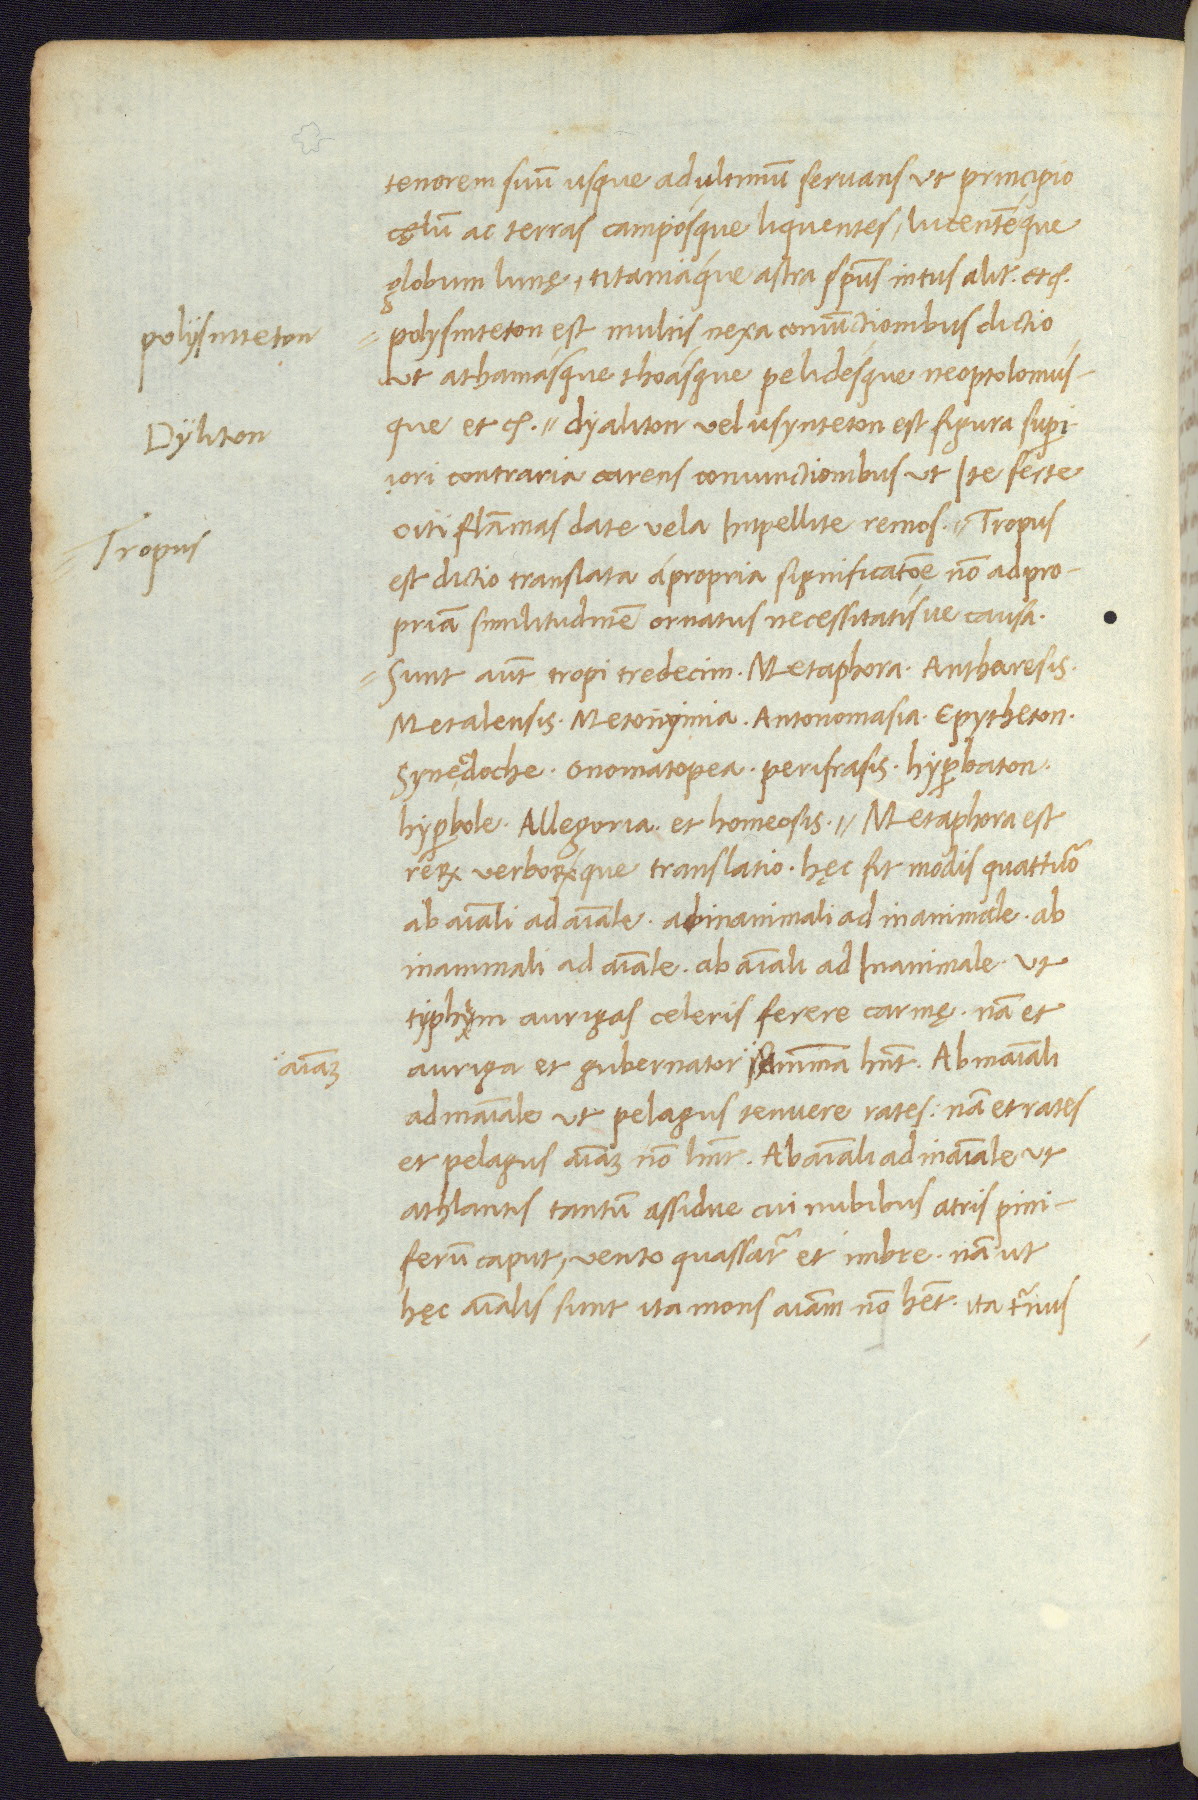 tenorem suū usque ad ultimū servans ut principio
cęlū ac terras campósque liquentes, lucentēque
globum lunę, titaniáque astra spūs intus alit. et c̄.
polysinteton
polysinteton est multis nexa coniūctionibus dictio
ut athamásque thoásque pelidésque neoptolomus-
que et c̄. // dyaliton vel asynteton est figura supi-
Dÿliton
iori contraria carens coniunctionibus ut Ite ferte
citi flāmas date vela Inpellite remos. // Tropus
Tropus
est dictio translata á propria significatōe nō ad pro-
priā similitudinē ornatus necessitatísve causa.
Sunt aūt tropi tredecim. Metaphora. Antharesis.
Metalensis. Metonymia. Antonomasia. Epytheton.
Synędoche. Onomatopea. perifrasis. hypbaton.
hypbole. Allegoria. et homeosis. // Metaphora est
reꝝ verboꝝque translatio. hęc fit modis quattuor
ab aīali ad aīale. ab inanimali ad inanimale. ab
inanimali ad aīale. ab aīali ad Inanimale. ut
typhym aurigas celeris ferere carinę. nā et
aīaꝫ
auriga et gubernator hn̄t. Ab inaīali
ad inaīale ut pelagus tenuere rates: nā et rates
et pelagus aīaꝫ nō hn̄t. Ab aīali ad inaīale ut
athlantis tantū assidue cui nubibus atris pini-
ferū caput, vento quassat et imbre. nā ut
hęc aīalis sunt ita mons aīam nō hēt. ita